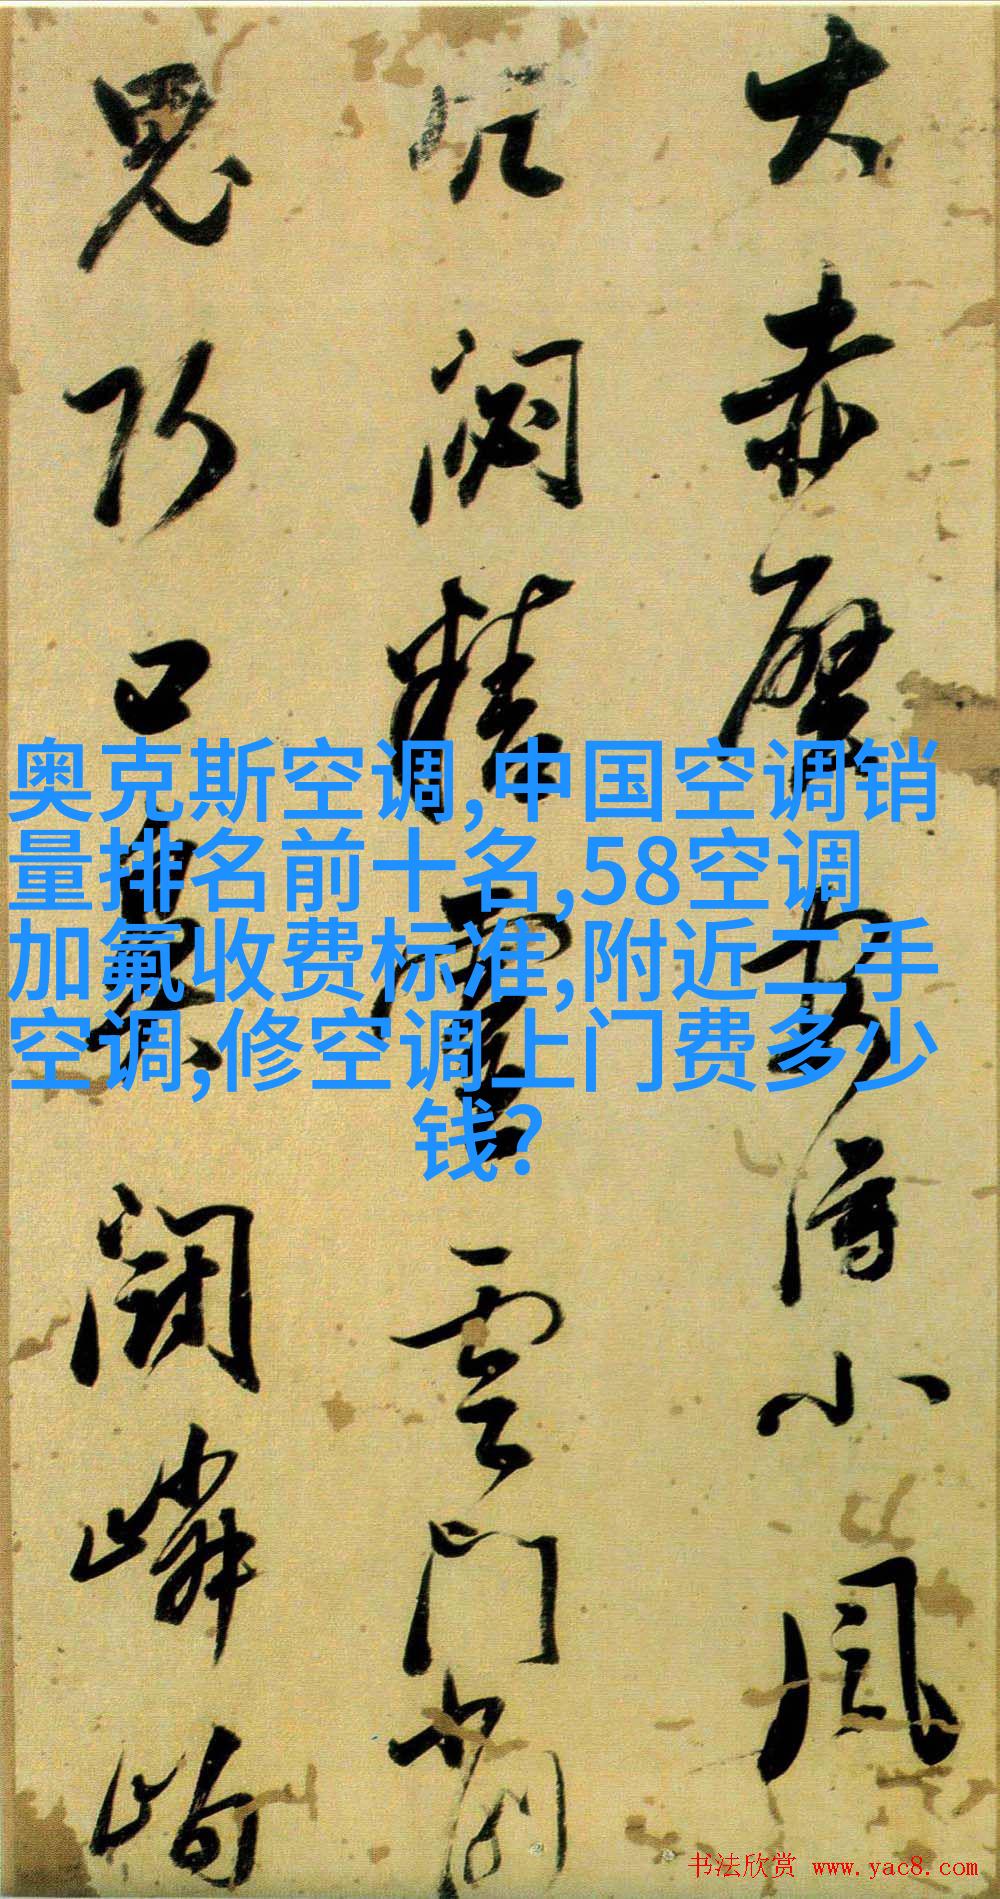 大赤壁
得小風
閟精靈雲門
思所
闢嶙峋
奥克斯空调,中国空调销
量排名前十名,58空调
加氟收费标准,附近二手
空调,修空调上门费多少
钱?
书法欣赏 www.yac8.com